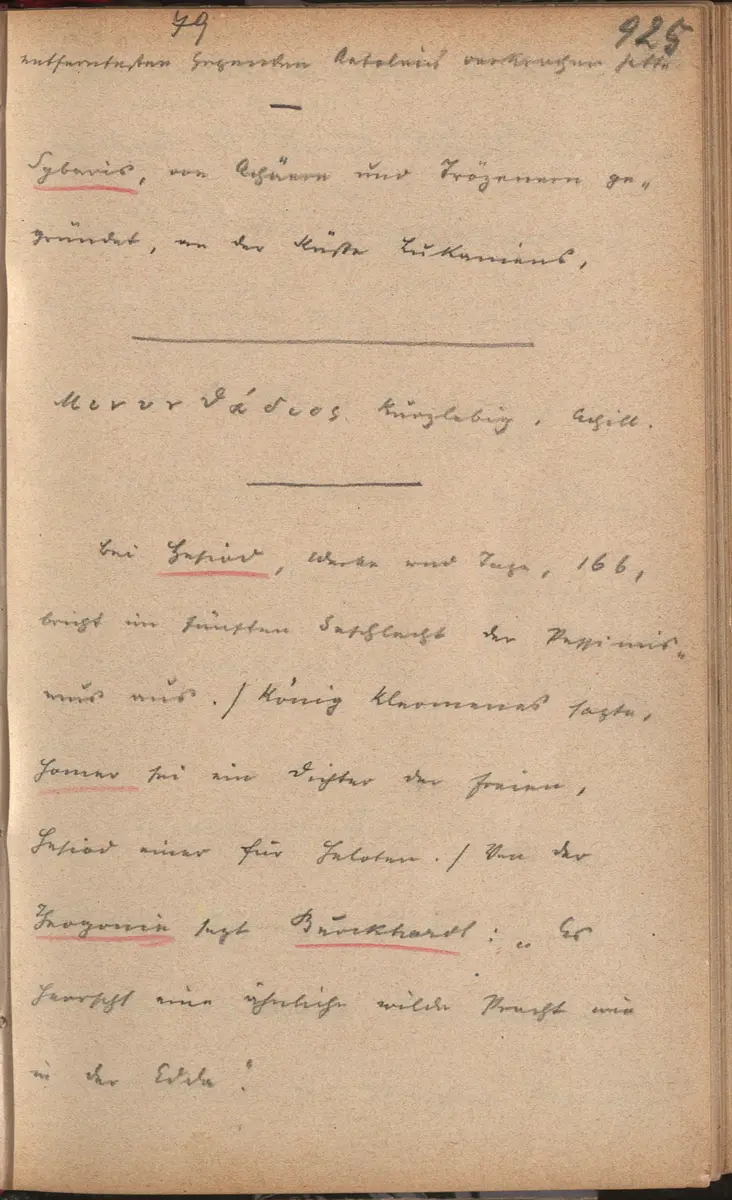 79
925
entferntesten Gegenden Aetoliens verkrochen hatte
Sybaris, von Achäern und Trözenern ge„
gründet, an der Küste Lukaniens,
Μινυνθάδιος kurzlebig, Achill.
Bei Hesiod, Werke und Tage, 166,
bricht im fünften Geschlecht der Pessimis„
mus aus. / König Kleomenes sagte,
Homer sei ein Dichter der Freien,
Hesiod einer für Heloten. / Von der
Theogonie sagt Burckhardt: „Es
herrscht eine ähnliche wilde Pracht wie
in der Edda“.